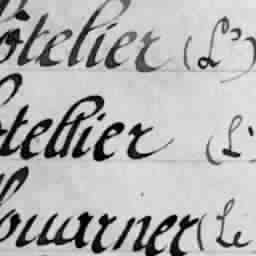 ôtelier (L')
telllier (L'
ouarner (Le